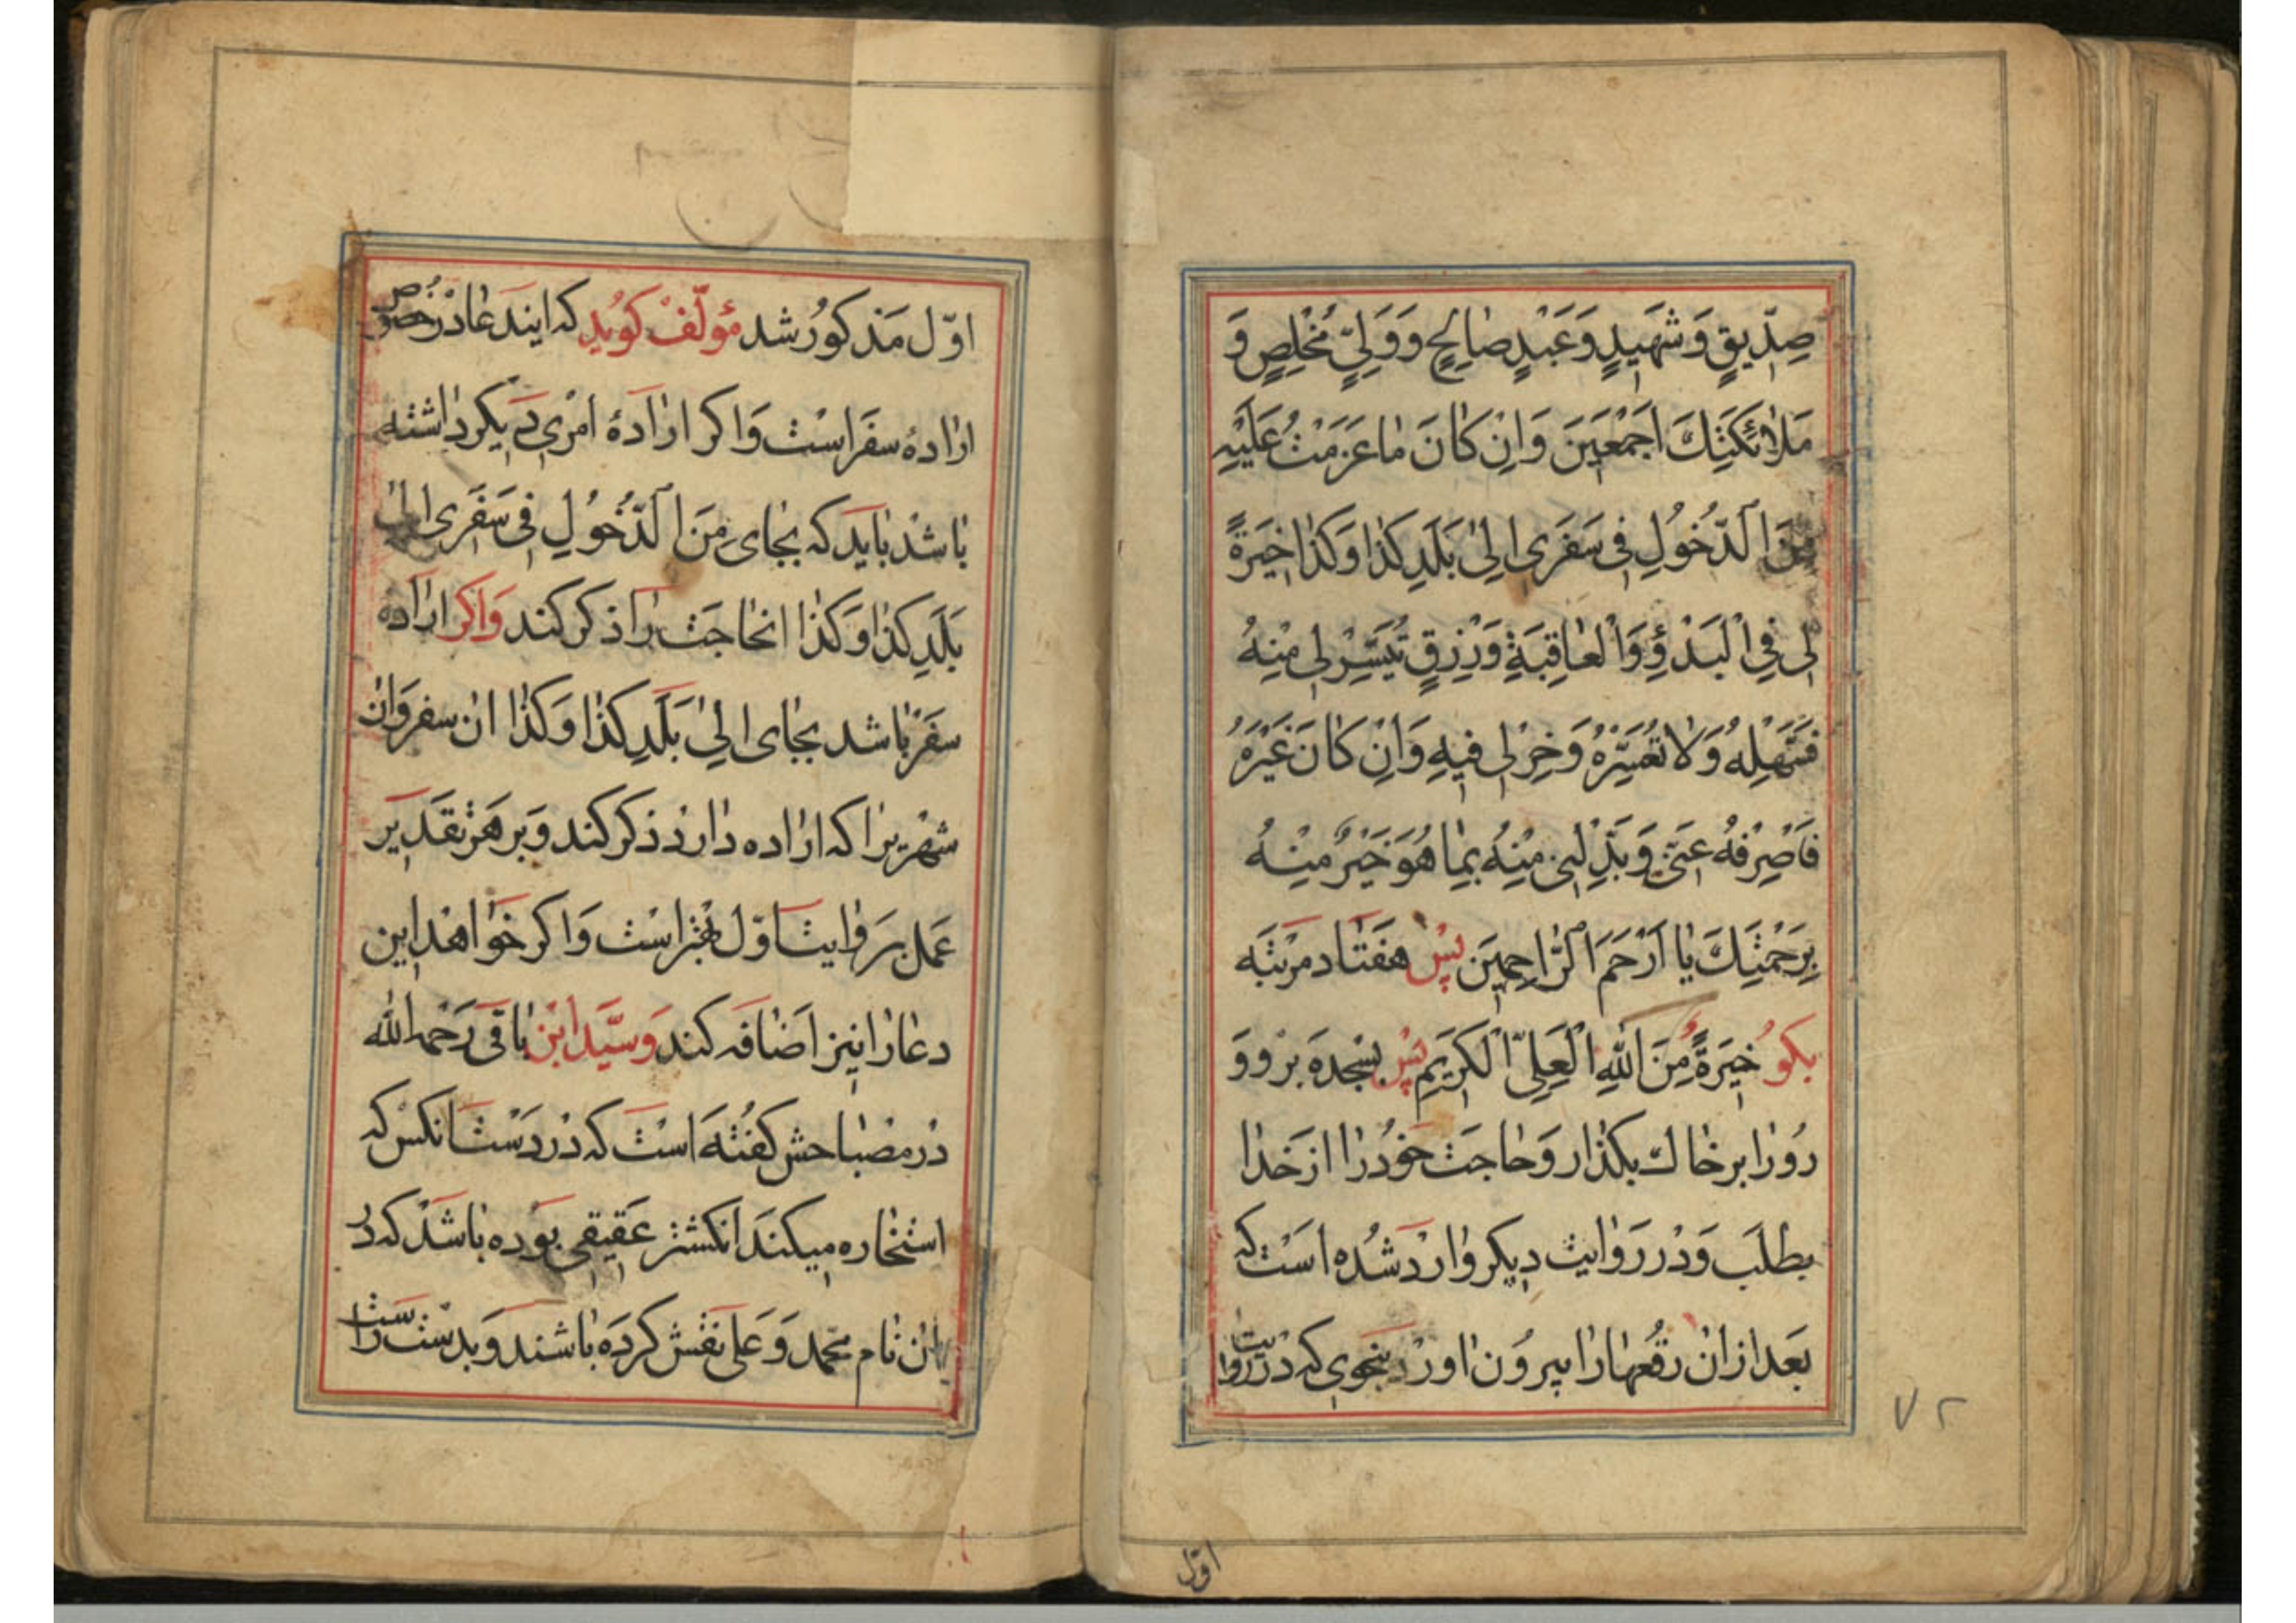 صِدّيقٍ وَشَهيدٍ وَعَبْدٍ صالِحٍ وَوَلِيٍّ مُخْلِصٍ وَ
مَلائِكَتِكَ اَجْمَعينَ وَاِنْ كانَ ما عَزَمْتُ عَلَيْهِ
مِنَ الدُّخُولِ فى سَفَرى اِلىٰ بَلَدِ كَذا وَكَذا خِيَرَةً
لى فِى الْبَدْؤِ وَالْعاقِبَةِ وَرِزْقٍ تُيَسِّرُ لى مِنْهُ
فَسَهِّلْهُ وَلا تُعَسِّرْهُ وَخِرْ لى فيهِ وَاِنْ كانَ غَيْرَهُ
فَاصْرِفْهُ عَنّى وَبَدِّلْنى مِنْهُ بِما هُوَ خَيْرٌ مِنْهُ
بِرَحْمَتِكَ يا اَرْحَمَ الرّاحِمينَ پس هفتاد مرتبه
بکو خِيَرَةً مِنَ اللهِ الْعَلِىِّ الْكَريمِ پس بسجده برو و
رو را بر خاك بکذار و حاجت خود را از خدا
بطلب و در روايت ديکر وارد شده است که
بعد از ان رقعها را بيرون اورد بنحوى که در روايت
اول
۷۲
اوّل مذکور شد مؤلّف کويد که ايندعا در خصوص
اراده سفر است و اکر ارادهٔ امرى ديکر داشته
باشد بايد که بجاى مِنَ الدُّخُولِ فى سَفَرى اِلىٰ
بَلَدِ كَذا وَكَذا انحاجت را ذکر کند و اکر اراده
سفر باشد بجاى اِلىٰ بَلَدِ كَذا وَكَذا ان سفر و ان
شهريرا که اراده دارد ذکر کند و بر هر تقدير
عمل بروايت اوّل بهتر است و اکر خواهد اين
دعا را نيز اضافه کند و سيّد ابن باقى رحمه الله
در مصباحش کفته است که در دست انکس که
استخاره ميکند انکشتر عقيقى بوده باشد که در
ان نام محمد و على نقش کرده باشند و بدست راست